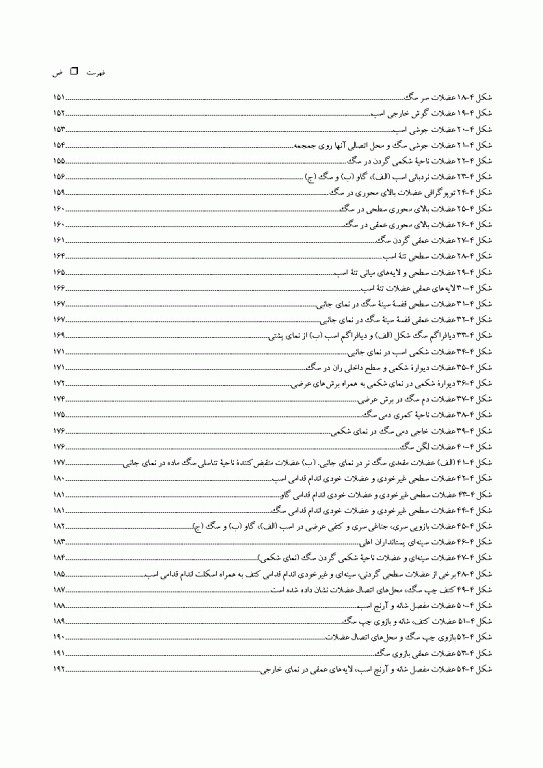 فهرست ❒ ض
شکل ۴-۱۸ عضلات سر سگ ۱۵۱
شکل ۴-۱۹ عضلات گوش خارجی اسب ۱۵۲
شکل ۴-۲۰ عضلات جوشی اسب ۱۵۳
شکل ۴-۲۱ عضلات جوشی سگ و محل اتصالی آنها روی جمجمه ۱۵۴
شکل ۴-۲۲ عضلات ناحیهٔ شکمی گردن در سگ ۱۵۵
شکل ۴-۲۳ عضلات نردبانی اسب (الف)، گاو (ب) و سگ (ج) ۱۵۶
شکل ۴-۲۴ توپوگرافی عضلات بالای محوری در سگ ۱۵۹
شکل ۴-۲۵ عضلات بالای محوری سطحی در سگ ۱۶۰
شکل ۴-۲۶ عضلات بالای محوری عمقی در سگ ۱۶۰
شکل ۴-۲۷ عضلات عمقی گردن سگ ۱۶۱
شکل ۴-۲۸ عضلات سطحی تنهٔ اسب ۱۶۴
شکل ۴-۲۹ عضلات سطحی و لایه‌های میانی تنهٔ اسب ۱۶۵
شکل ۴-۳۰ لایه‌های عمقی عضلات تنهٔ اسب ۱۶۶
شکل ۴-۳۱ عضلات سطحی قفسهٔ سینهٔ سگ در نمای جانبی ۱۶۷
شکل ۴-۳۲ عضلات عمقی قفسهٔ سینهٔ سگ در نمای جانبی ۱۶۷
شکل ۴-۳۳ دیافراگم سگ شکل (الف) و دیافراگم اسب (ب) از نمای پشتی ۱۶۹
شکل ۴-۳۴ عضلات شکمی اسب در نمای جانبی ۱۷۱
شکل ۴-۳۵ عضلات دیوارهٔ شکمی و سطح داخلی ران در سگ ۱۷۱
شکل ۴-۳۶ دیوارهٔ شکمی در نمای شکمی به همراه برش‌های عرضی ۱۷۲
شکل ۴-۳۷ عضلات دم سگ در برش عرضی ۱۷۴
شکل ۴-۳۸ عضلات ناحیهٔ کمری دمی سگ ۱۷۵
شکل ۴-۳۹ عضلات خاجی دمی سگ در نمای شکمی ۱۷۶
شکل ۴-۴۰ عضلات لگن سگ ۱۷۶
شکل ۴-۴۱ (الف) عضلات مقعدی سگ نر در نمای جانبی. (ب) عضلات منقبض‌کنندهٔ ناحیهٔ تناسلی سگ ماده در نمای جانبی ۱۷۷
شکل ۴-۴۲ عضلات سطحی غیرخودی و عضلات خودی اندام قدامی اسب ۱۸۰
شکل ۴-۴۳ عضلات سطحی غیرخودی و عضلات خودی اندام قدامی گاو ۱۸۱
شکل ۴-۴۴ عضلات سطحی غیرخودی و عضلات خودی اندام قدامی سگ ۱۸۱
شکل ۴-۴۵ عضلات بازویی سری، جناغی سری و کتفی عرضی در اسب (الف)، گاو (ب) و سگ (ج) ۱۸۲
شکل ۴-۴۶ عضلات سینه‌ای پستانداران اهلی ۱۸۳
شکل ۴-۴۷ عضلات سینه‌ای و عضلات ناحیهٔ شکمی گردن سگ (نمای شکمی) ۱۸۴
شکل ۴-۴۸ برخی از عضلات سطحی گردنی، سینه‌ای و غیرخودی اندام قدامی کتف به همراه اسکلت اندام قدامی اسب ۱۸۵
شکل ۴-۴۹ کتف چپ سگ، محل‌های اتصال عضلات نشان داده شده است ۱۸۷
شکل ۴-۵۰ عضلات مفصل شانه و آرنج اسب ۱۸۸
شکل ۴-۵۱ عضلات کتف، شانه و بازوی چپ سگ ۱۸۹
شکل ۴-۵۲ بازوی چپ سگ و محل‌های اتصال عضلات ۱۹۰
شکل ۴-۵۳ عضلات عمقی بازوی سگ ۱۹۱
شکل ۴-۵۴ عضلات مفصل شانه و آرنج اسب، لایه‌های عمقی در نمای خارجی ۱۹۲